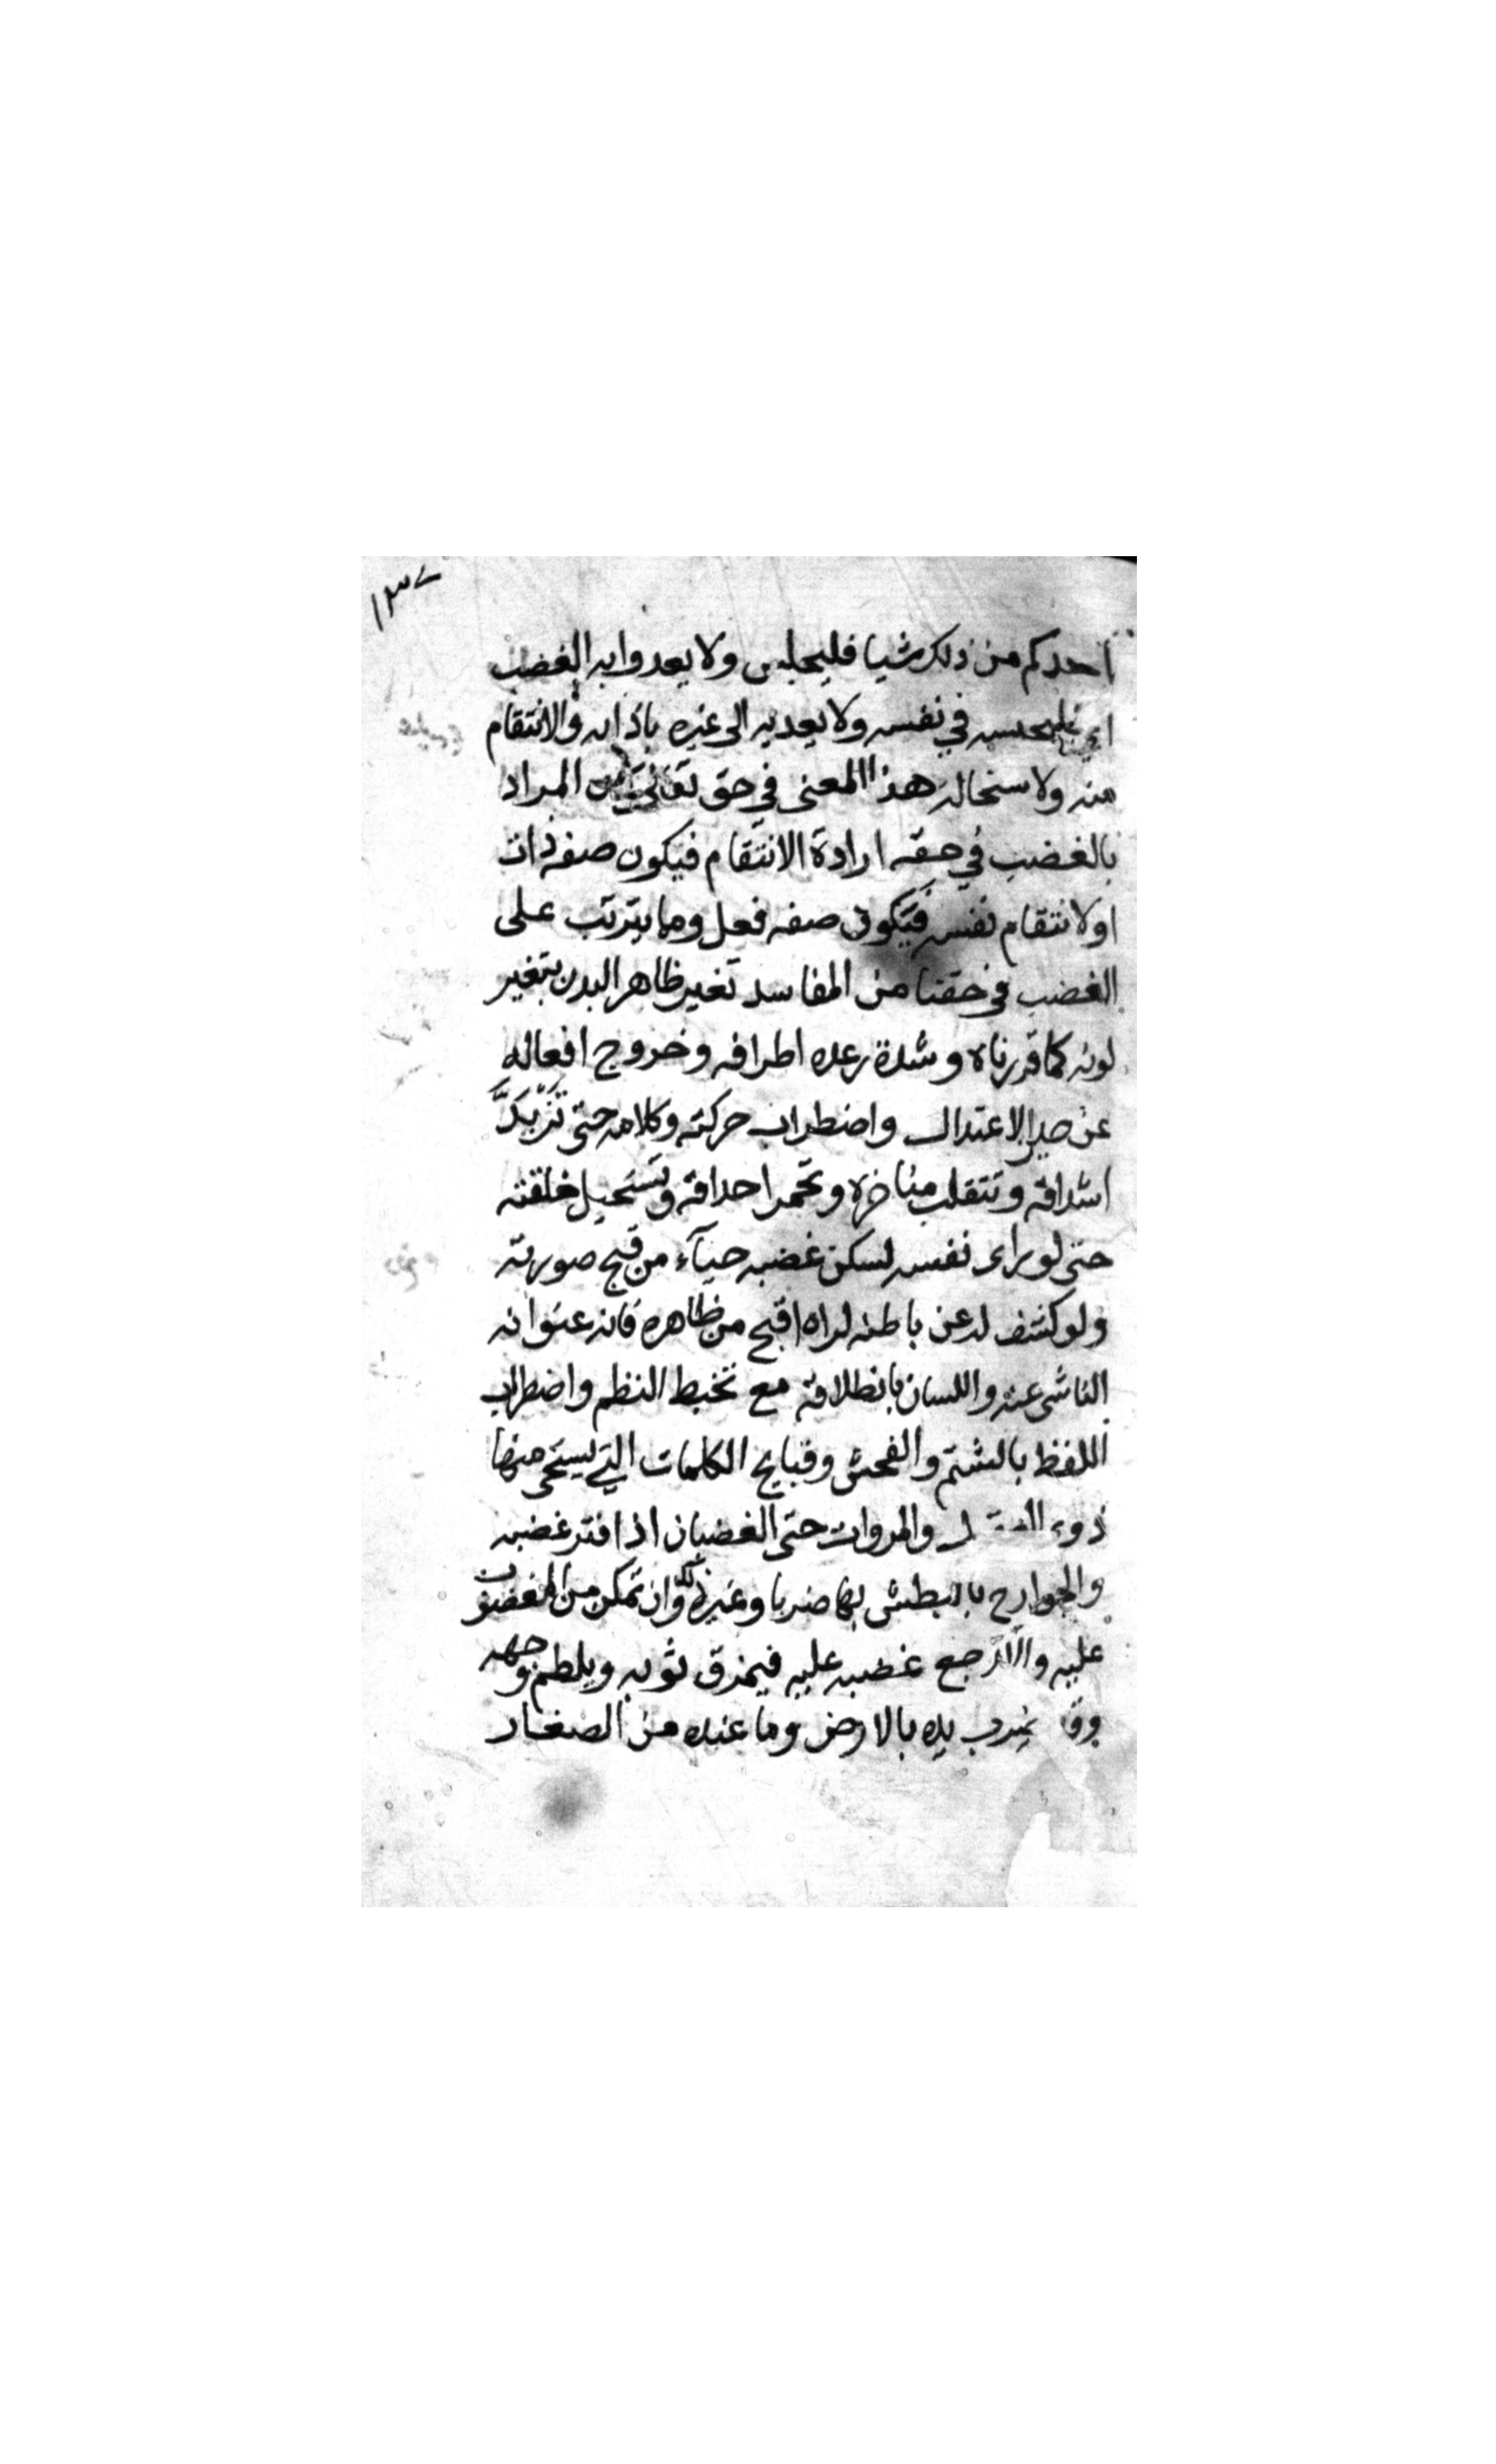 ١٣٧
احدكم من ذلك شيا فليجلس ولا يعدوا به الغضب
اي فليحبسه في نفسه ولا يعديه الى غيره باذائه والانتقام
منه ولاستحالة هذا المعنى في حق تعالى المراد
بالغضب في حقه ارادة الانتقام فيكون صفه ذات
او لانتقام نفسه فيكون صفه فعل وما يترتب على
الغضب في حقنا من المفاسد تغير ظاهر البدن بتغير
لونه كما قررناه وشدة رعده اطرافه وخروج افعاله
عن حيز الاعتدال واضطراب حركته وكلامه حتى تزبد
اشداقه وتنقلب مناخره وتحمر احداقه وتستحيل خلقته
حتى لو راى نفسه لسكن غضبه حيآء من قبح صورته
ولو كشف له عن باطنه لراه اقبح من ظاهره فانه عنوانه
الناشى عنه واللسان بانطلاقه مع تخبط النظم واضطراب
اللفظ بالشتم والفحش وقبايح الكلمات التي يستحى منها
ذوي والمروات حتى الغضبان اذا فتر غضبه
والجوارح بالبطش بها ضربا وغير ذلك وان تمكن من المغضوب
عليه والا رجع غضبه عليه فيمزق ثوبه ويلطم وجهه
وقد يضرب يده بالارض وما عنده من الصغار